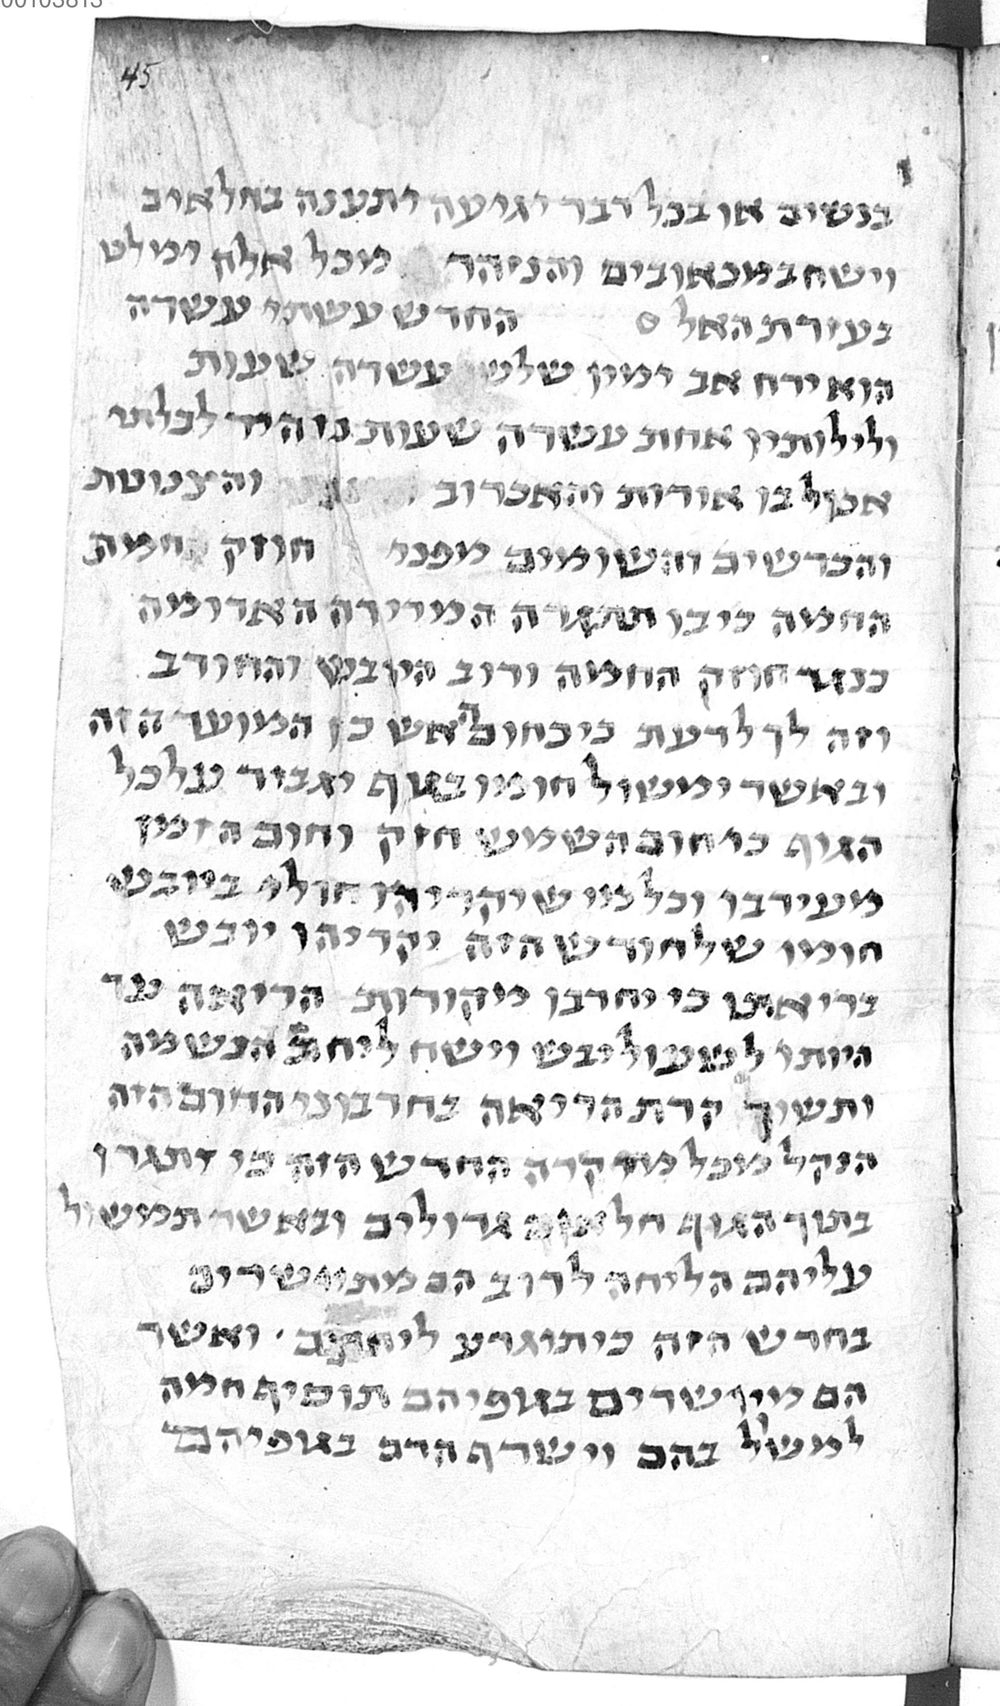 00103813
45
בנשים או בכל דבר יגיעה יתענה בחלאים
וישח במכאובים והניהר מכל אלה ימלט
בעזרת האל ס החדש עשתי עשרה
הוא ירח אב ימיו שלש עשרה שעות
ולילותיו אחת עשרה שעות נוהיר לבלתי
אכול בו אורות והאכרוב והצנונות
והכרשים והשומים מפני חוזק חמת
החמה כי בו תתגרה המרירה האדומה
כנגד חוזק החמה ורוב היובש והחורב
וזה לך לדעת כי כחום האש כן המועד הזה
ובאשר ימשול חומו בגוף יגביר על כל
הגוף כי חום השמש חזק וחום הזמן
מעידבו וכל מי שיקריהו חולי ביובש
חומו של חודש הזה יקריהו יובש
בריאתו כי יחרבו מקורות הריאה עד
היותו לשעול יבש וישח ליחת הנשמה
ותשוך קרת הריאה בחרבוני החום הזה
הנקל מכל מקרה החדש הזה כי יתגרו
בתוך הגוף חלאים גדולים ובאשר תמשול
עליהם הליחה לרוב הם מתיישרים
בחדש הזה כי תוגרע ליחתם ואשר
הם מיושרים בגופיהם תוסיף חמה
למשול בהם וישרף הדם בגופיהם